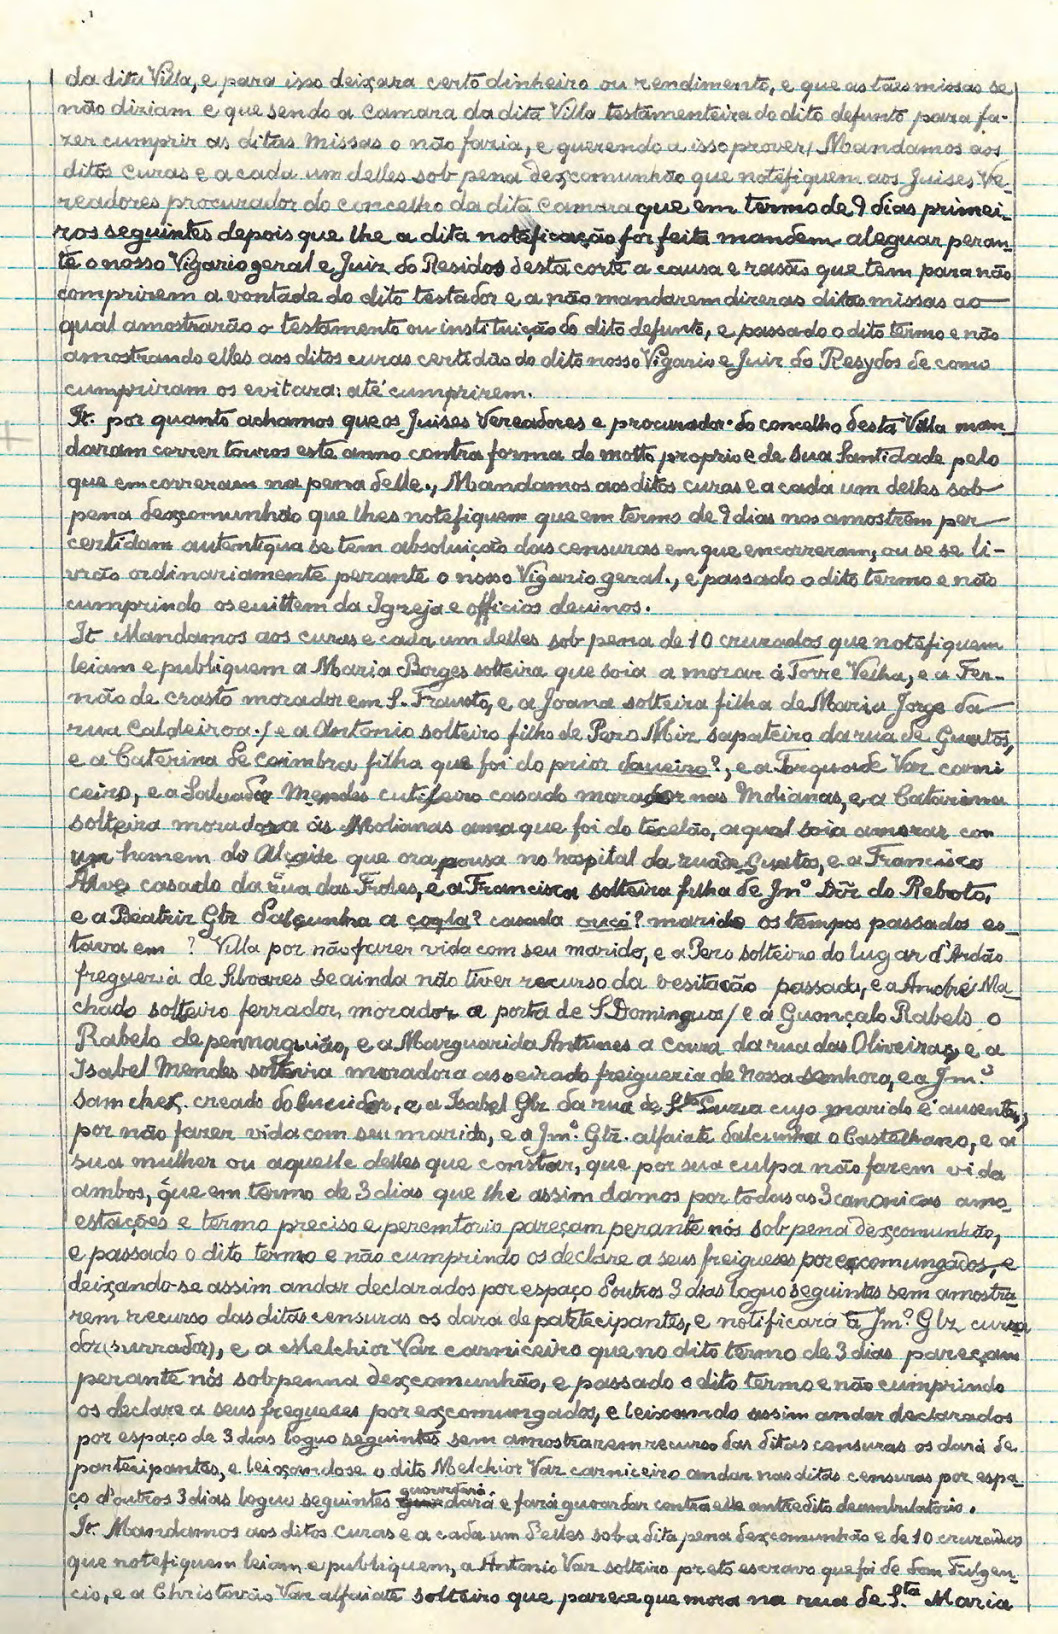 da dita Villa, e para isso deixara certo dinheiro ou rendimento, e que as tães missas se
não diriam e que sendo a camara da dita Villa testamenteira do dito defunto para fa-
zer cumprir as ditas missas o não faria, e querendo a isso prover/ Mandamos aos
ditos curas e a cada um delles sob pena dexcomunhão que notefiquem aos Juises Ve-
readores procurador do concelho da dita camara que em termo de 9 dias primei-
ros seguintes depois que lhe a dita noteficação for feita mandem aleguar peran-
te o nosso Vigario geral e Juiz do Residos desta corte a causa e rasãs que tem para não
comprirem a vontade do dito testador e a não mandarem direras ditas missas ao
qual amostrarão o testamento ou instituição do dito defunto, e passado o dito termo e não
amostrando elles aos ditos curas certidão do dito nosso Vigario e Juiz do Resydos de como
cumpriram os evitara: até cumprirem.
It. por quanto achamos que os Juises Vereadores e procurador do concelho desta Villa man-
daram correr touros este anno contra forma do motto proprio e de Sua Santidade pelo
que emcorreram na pena delle., Mandamos aos ditos curas e a cada um delles sob
pena dexcomunhão que lhes notefiquem que em termo de 9 dias nos amostrem per
certidam autentiqua se tem absoluição das censuras em que encorreram, ou se se li-
vrão ordinariamente perante o nosso Vigario geral., e passado o dito termo e não
cumprindo os euittem da Igreja e officios deuinos.
It Mandamos aos curas e cada um delles sob pena de 10 cruzados que notefiquem
leiam e publiquem a Maria Borges solteira que soia a morar á Torre Velha, e a Fer-
não de crasto morador em S. Frausto, e a Joana solteira filha de Maria Jorge da
rua Caldeiroa./ e a Antonio solteiro filho de Pero Miz sapateiro da rua de Guatos,
e a Caterina de coimbra filha que foi do prior daueiro?, e a Torquade Vaz carni
ceiro, e a Saluador Mendes cutileiro casado morador nas Molianas, e a Catarina
solteira moradora ás Molianas ama que foi do tecelão, a qual soia amorar com
um homem do Alcaide que ora pousa no hospital da rua de Guatos, e a Francisco
Alvz casado da rua das Froles, e a Francisca solteira filha de Jmº Dõz do Reboto,
e a Beatriz Glz dalcunha a cogla? casada cuiçó? marido os tempos passados es-
tava em ? Villa por não fazer vida com seu marido, e a Pero solteiro do lugar d'Ardão
fregueria de Silvares se ainda não tiver recurso da vesitação passada, e a André Ma-
chado solteiro ferrador, morador a porta de S Domingos/ e a Guonçalo Rabelo o
Rabelo de pennaguião, e a Marguarida Antunes a coura da rua das Oliveiras, e a
Isabel Mendes solteira moradora as oeirado freigueria de nossa senhora, e a Jmº
Samchez creado do ouuidor, e a Isabel Glz da rua de Stª Luzia cujo marido é ausente,
por não fazer vida com seu marido, e a Jmº Glz. alfaiate dalcunha o Castelhano, e a
sua mulher ou aquelle delles que constar, que por sua culpa não fazem vida
ambos, que em termo de 3 dias que lhe assim damos por todas as 3 canonicas amo-
estações e termo preciso e peremtorio pareçam perante nós sob pena dexcomunhão,
e passado o dito termo e não cumprindo os declare a seus freigueses por excomungados, e
deixando-se assim andar declarados por espaço doutros 3 dias loguo seguintes sem amostra-
rem recurso das ditas censuras os dara de partecipantes, e notificará a Jmº Glz curra
dor (surrador), e a Melchior Vaz carniceiro que no dito termo de 3 dias pareçam
perante nós sob penna dexcomunhão, e passado o dito termo e não cumprindo
os declare a seus fregueses por excomungados, e leixando assim andar declarados
por espaço de 3 dias loguo seguintes sem amostrarem recurso das ditas censuras os dará de
partecipantes, e leixandose o dito Melchior Vaz carniceiro andar nas ditas censuras por espa-
ço d'outros 3 dias loguo seguintes guoardará e fará guoardar contra elle antredito deambulatorio.
It. Mandamos aos ditos curas e a cada um delles sob a dita pena dexcomunhão e de 10 cruzados
que notefiquem leiam e publiquem, a Antonio Vaz solteiro preto escravo que foi de dom Fulgen-
cio, e a Christovão Vaz alfaiate solteiro que parece que mora na rua de S.ta Maria